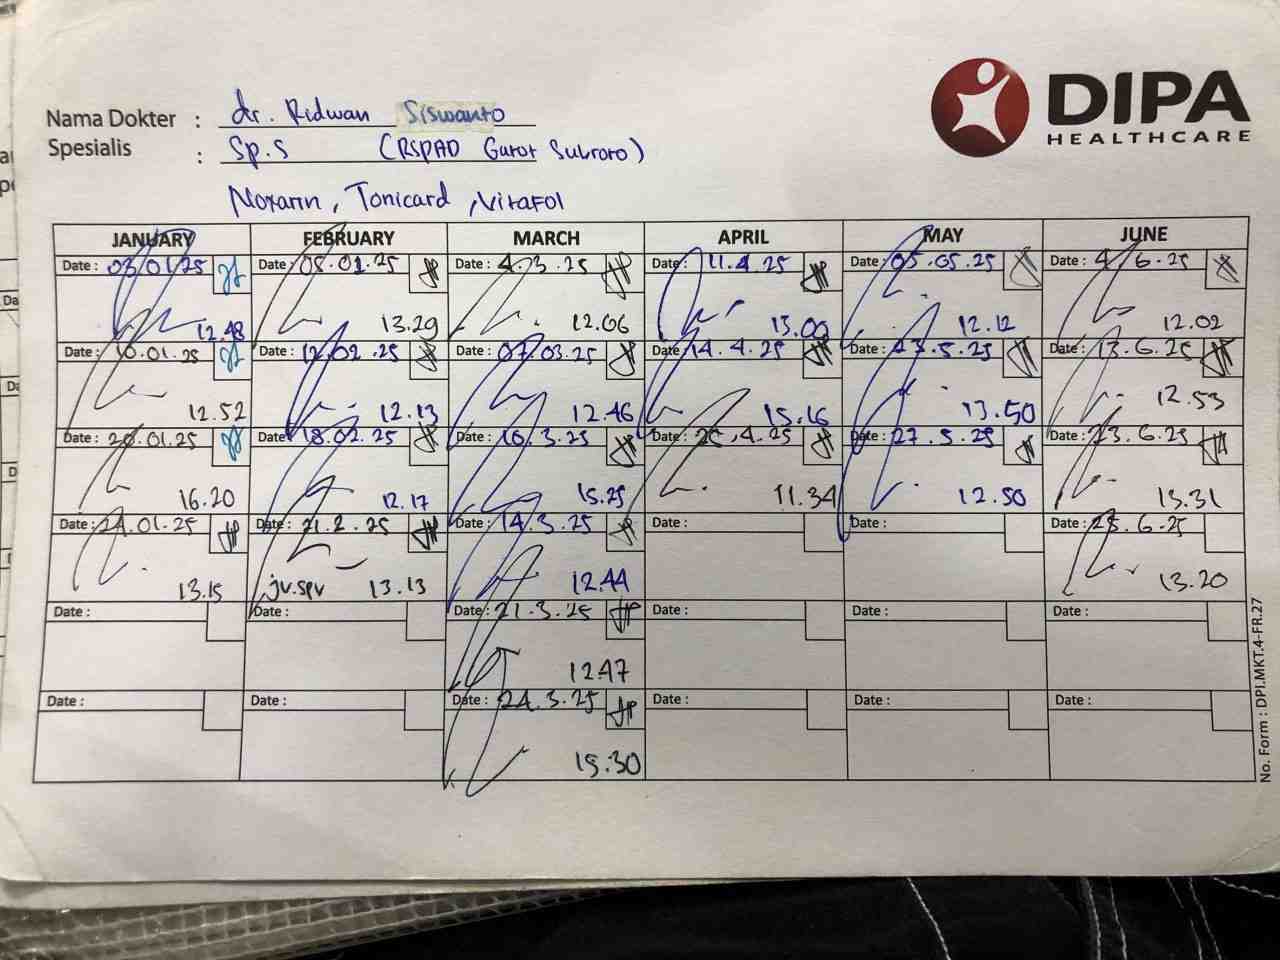 DIPA
HEALTHCARE
Nama Dokter : dr. Ridwan Siswanto
Spesialis : Sp.S (RSPAD Gatot Subroto)
Noxarin, Tonicard, Vitafol
JANUARY FEBRUARY MARCH APRIL MAY JUNE
Date : 03/01/25 Date : 05.01.25 Date : 4.3.25 Date : 11.4.25 Date : 05.05.25 Date : 4.6.25
12.48 13.29 12.06 13.00 12.12 12.02
Date : 10.01.25 Date : 12.02.25 Date : 07/03.25 Date : 14.4.25 Date : 23.5.25 Date : 13.6.25
12.52 12.13 12.46 15.16 13.50 12.53
Date : 20.01.25 Date : 18.02.25 Date : 10.3.25 Date : 25.4.25 Date : 27.5.25 Date : 23.6.25
16.20 12.17 15.25 11.34 12.50 13.31
Date : 24.01.25 Date : 21.2.25 Date : 14.3.25 Date : Date : Date : 25.6.25
13.15 jv.spv 13.13 12.44 13.20
Date : Date : Date : 21.3.25 Date : Date : Date :
12.47
Date : Date : Date : 24.3.25 Date : Date : Date :
15.30
No. Form : DPI.MKT.4-FR.27